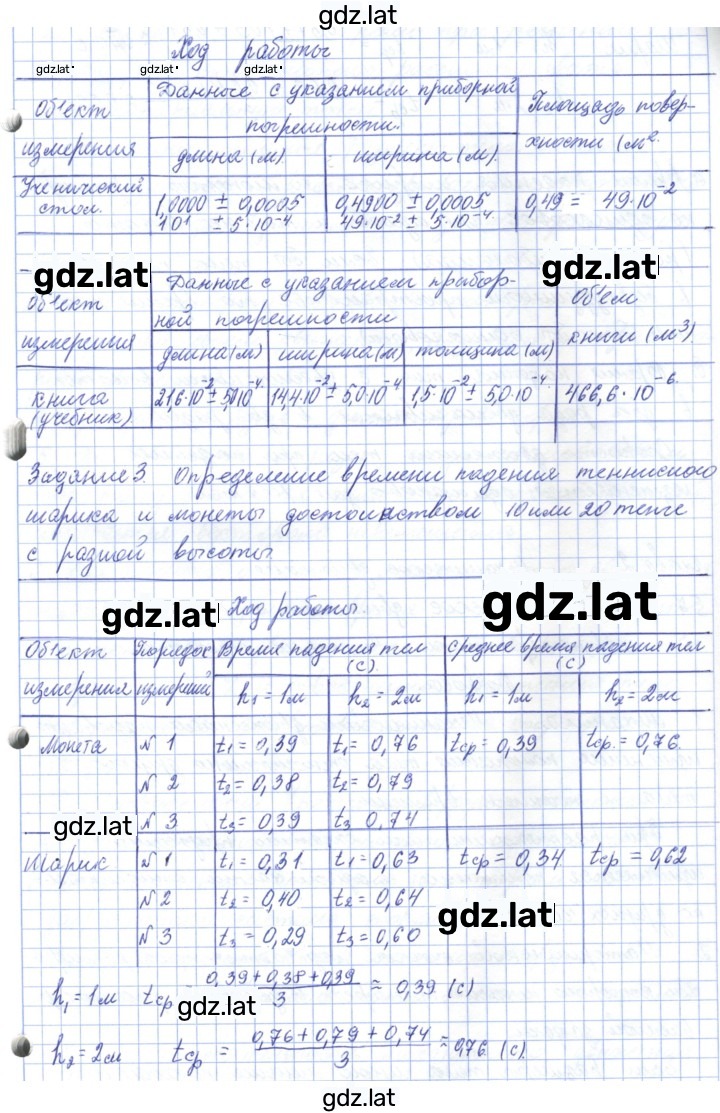 gdz.lat
Ход работы
gdz.lat gdz.lat gdz.lat
Объект измерения
Данные с указанием приборной погрешности.
Площадь поверхности (м²
длина (м) ширина (м).
Ученический стол.
1,0000 ± 0,0005 0,4900 ± 0,0005 0,49 = 49·10⁻²
1·0¹ ± 5·10⁻⁴ 49·10⁻² ± 5·10⁻⁴
gdz.lat gdz.lat
Объект измерения
Данные с указанием приборной погрешности
Объем книги (м³)
длина (м) ширина (м) толщина (м)
книга (учебник)
21,6·10⁻² ± 5,0·10⁻⁴ 14,4·10⁻² ± 5,0·10⁻⁴ 1,5·10⁻² ± 5,0·10⁻⁴ 466,6·10⁻⁶
Задание 3. Определение времени падения теннисного
шарика и монеты достоинством 10 или 20 тенге
с разной высоты
gdz.lat Ход работы. gdz.lat
Объект измерения
Порядок измерений
Время падения тел (с)
среднее время падения тел (с)
h₁ = 1м h₂ = 2м h₁ = 1м h₂ = 2м
Монета №1 t₁ = 0,39 t₁ = 0,76 tср = 0,39 tср. = 0,76.
№2 t₂ = 0,38 t₂ = 0,79
gdz.lat №3 t₃ = 0,39 t₃ 0,74
Шарик №1 t₁ = 0,31 t₁ = 0,63 tср = 0,34 tср = 0,62
№2 t₂ = 0,40 t₂ = 0,64
gdz.lat
№3 t₃ = 0,29 t₃ = 0,60
h₁ = 1м tср (0,39 + 0,38 + 0,39)/3 ≈ 0,39 (с)
gdz.lat
h₂ = 2м tср = (0,76 + 0,79 + 0,74)/3 ≈ 0,76 (с).
gdz.lat